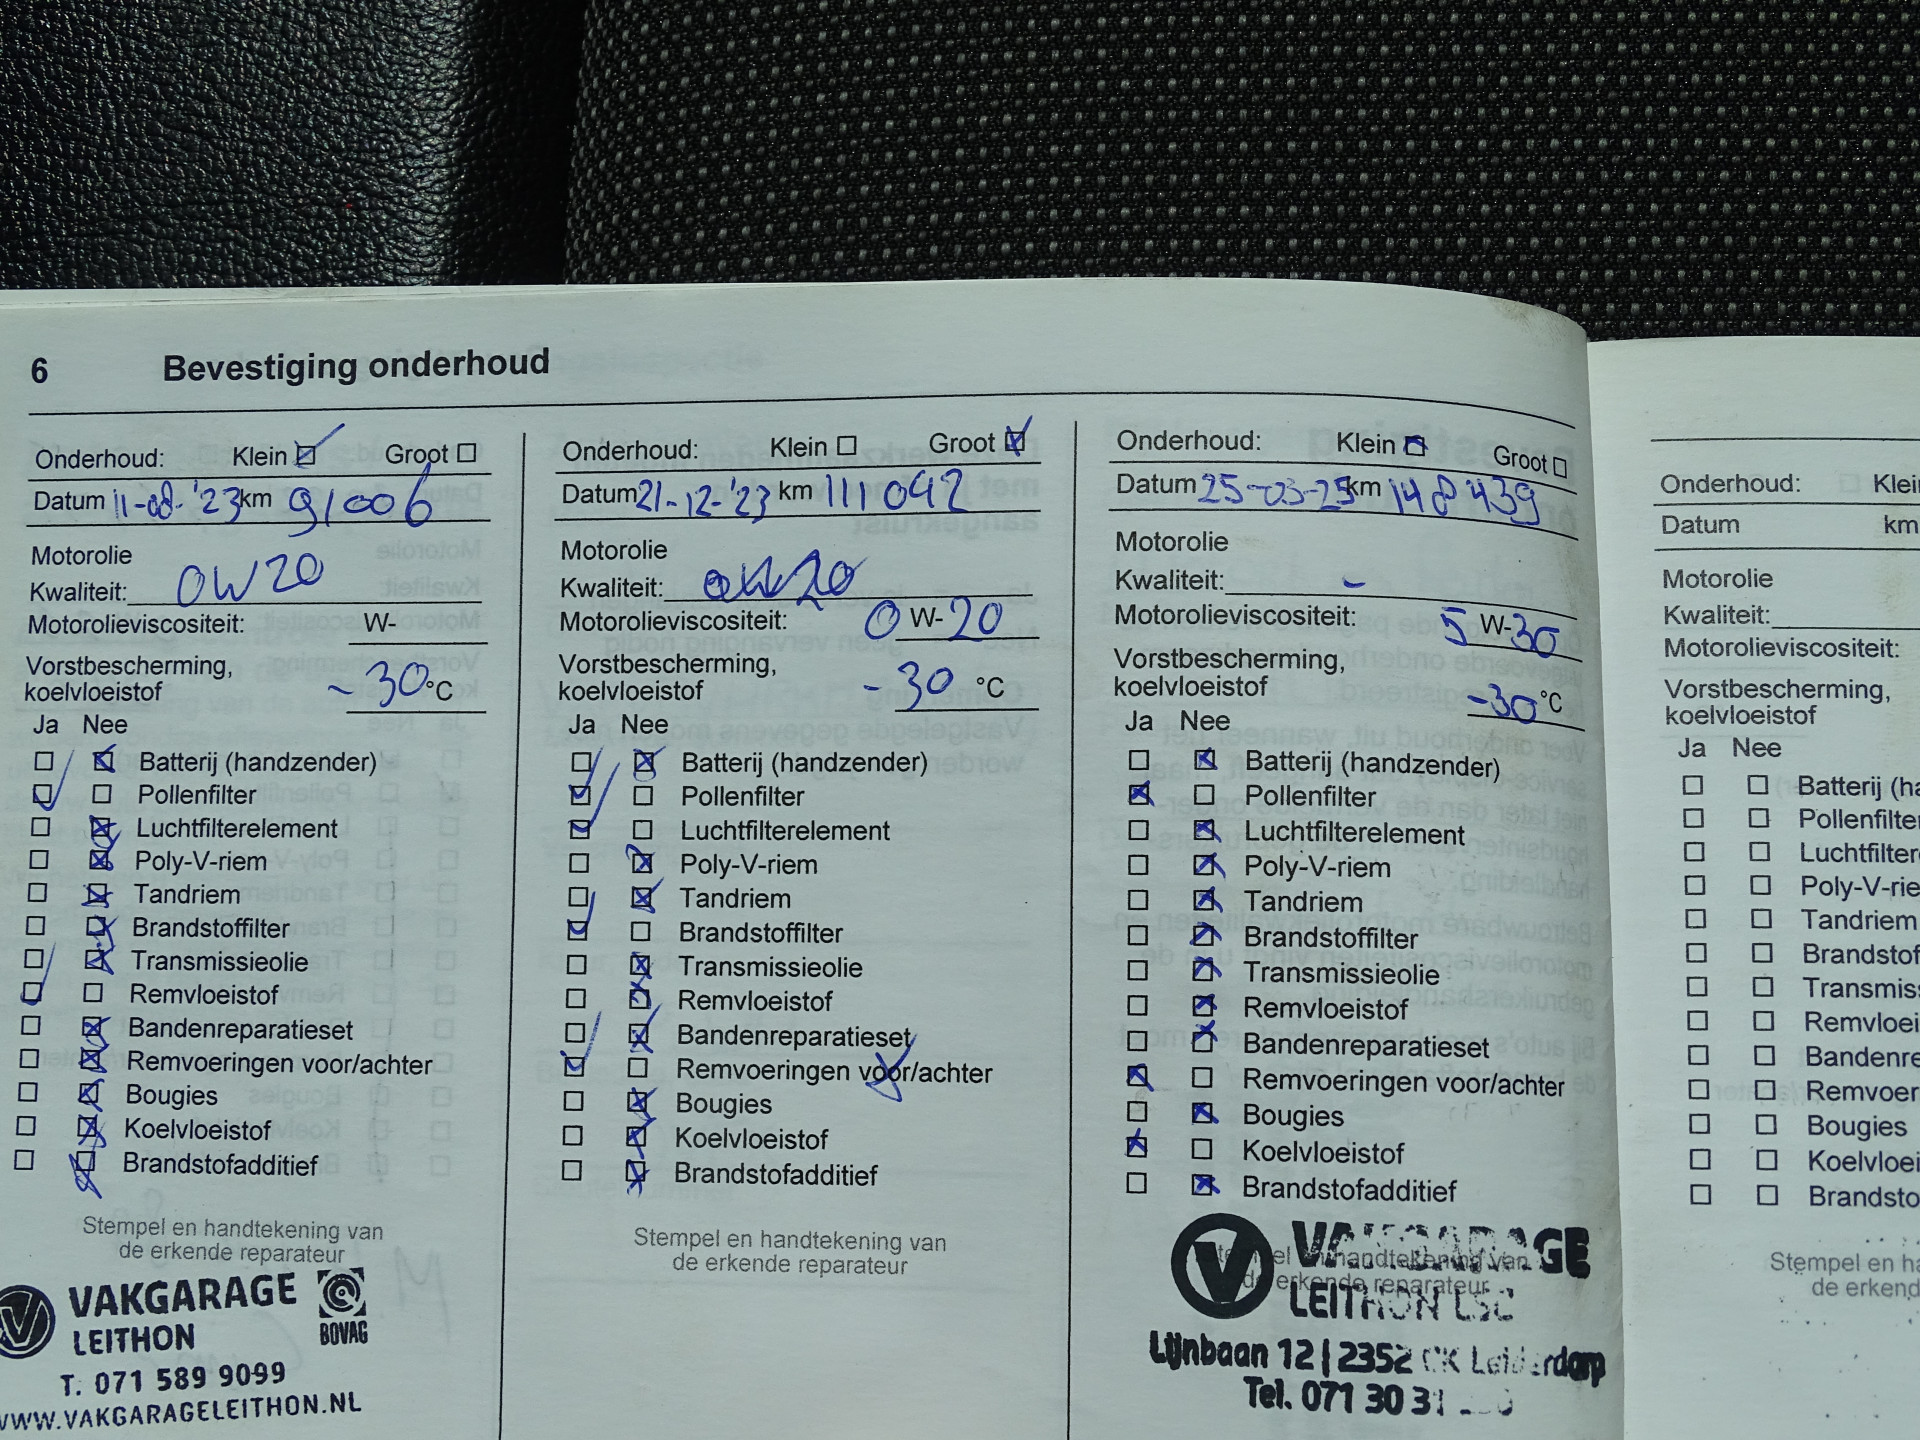 6 Bevestiging onderhoud
Onderhoud: Klein Groot
Datum 11-08-'23 km 91006
Motorolie
Kwaliteit: 0W20
Motorolieviscositeit: W-
Vorstbescherming,
koelvloeistof -30 °C
Ja Nee
Batterij (handzender)
Pollenfilter
Luchtfilterelement
Poly-V-riem
Tandriem
Brandstoffilter
Transmissieolie
Remvloeistof
Bandenreparatieset
Remvoeringen voor/achter
Bougies
Koelvloeistof
Brandstofadditief
Stempel en handtekening van
de erkende reparateur
VAKGARAGE
LEITHON
BOVAG
T. 071 589 9099
WWW.VAKGARAGELEITHON.NL
Onderhoud: Klein Groot
Datum 21-12-'23 km 111042
Motorolie
Kwaliteit: 0W20
Motorolieviscositeit: 0 W-20
Vorstbescherming,
koelvloeistof -30 °C
Ja Nee
Batterij (handzender)
Pollenfilter
Luchtfilterelement
Poly-V-riem
Tandriem
Brandstoffilter
Transmissieolie
Remvloeistof
Bandenreparatieset
Remvoeringen voor/achter
Bougies
Koelvloeistof
Brandstofadditief
Stempel en handtekening van
de erkende reparateur
Onderhoud: Klein Groot
Datum 25-03-25 km 148439
Motorolie
Kwaliteit: -
Motorolieviscositeit: 5 W-30
Vorstbescherming,
koelvloeistof -30 °C
Ja Nee
Batterij (handzender)
Pollenfilter
Luchtfilterelement
Poly-V-riem
Tandriem
Brandstoffilter
Transmissieolie
Remvloeistof
Bandenreparatieset
Remvoeringen voor/achter
Bougies
Koelvloeistof
Brandstofadditief
Stempel en handtekening van
de erkende reparateur
VAKGARAGE
LEITHON
Lijnbaan 12 | 2352 CK Leiderdorp
Tel. 071 30 31
Onderhoud: Klei
Datum km
Motorolie
Kwaliteit:
Motorolieviscositeit:
Vorstbescherming,
koelvloeistof
Ja Nee
Batterij (ha
Pollenfilte
Luchtfilter
Poly-V-rie
Tandriem
Brandstof
Transmis
Remvloei
Bandenre
Remvoer
Bougies
Koelvloei
Brandsto
Stempel en ha
de erkend